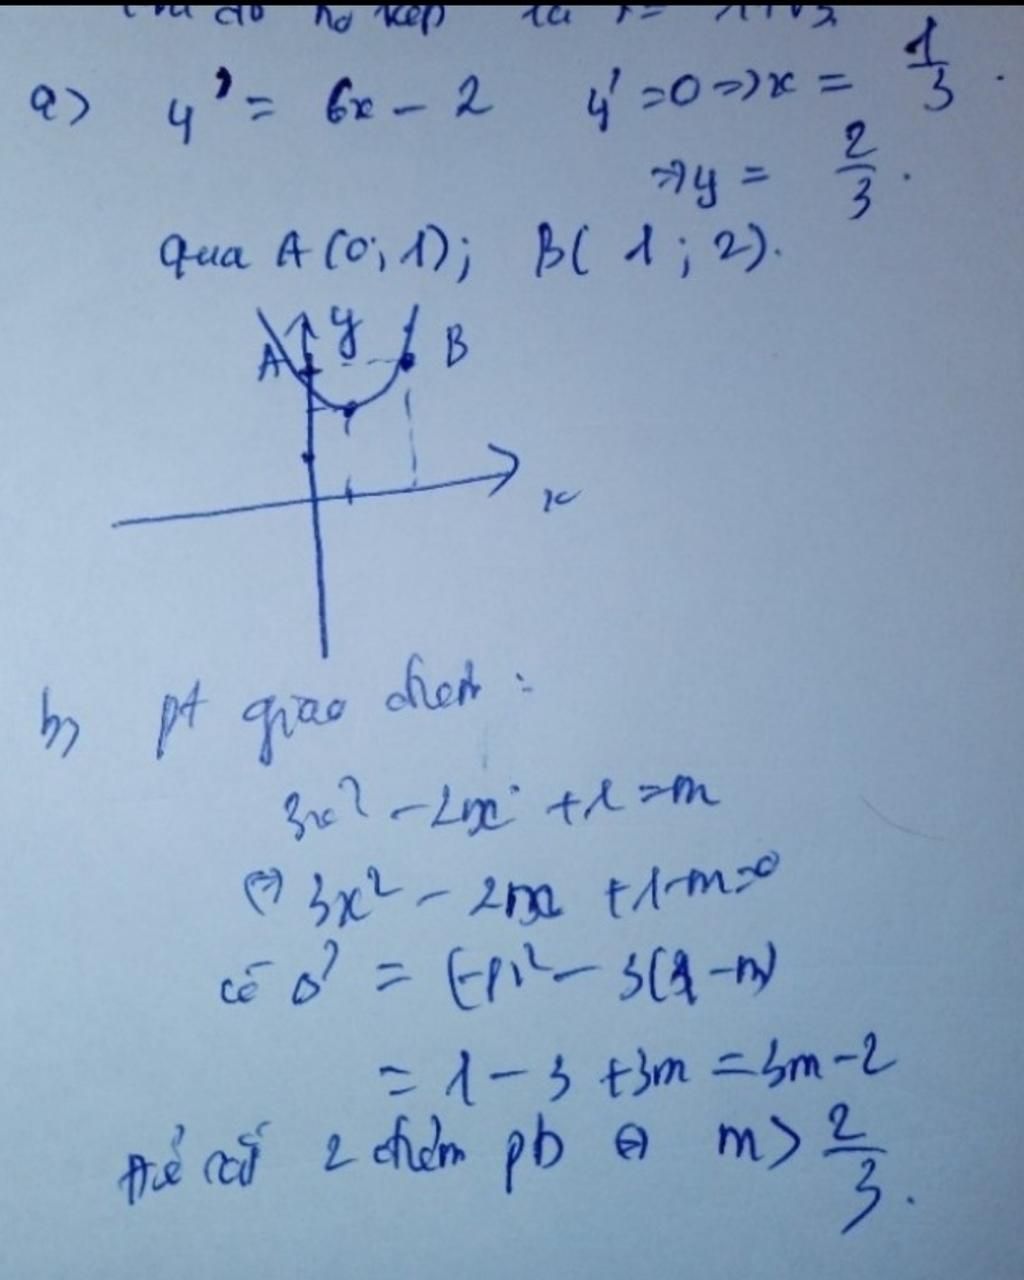 kép là
a) y' = 6x - 2 y' = 0 => x = 1/3.
=> y = 2/3.
qua A(0; 1); B( 1 ; 2).
y
A B
x
b) pt giao điểm :
3x² - 2x + 1 = m
(=) 3x² - 2x + 1 - m = 0
có Δ' = (-1)² - 3(1 - m)
= 1 - 3 + 3m = 3m - 2
Để cắt 2 điểm pb ⇔ m > 2/3.